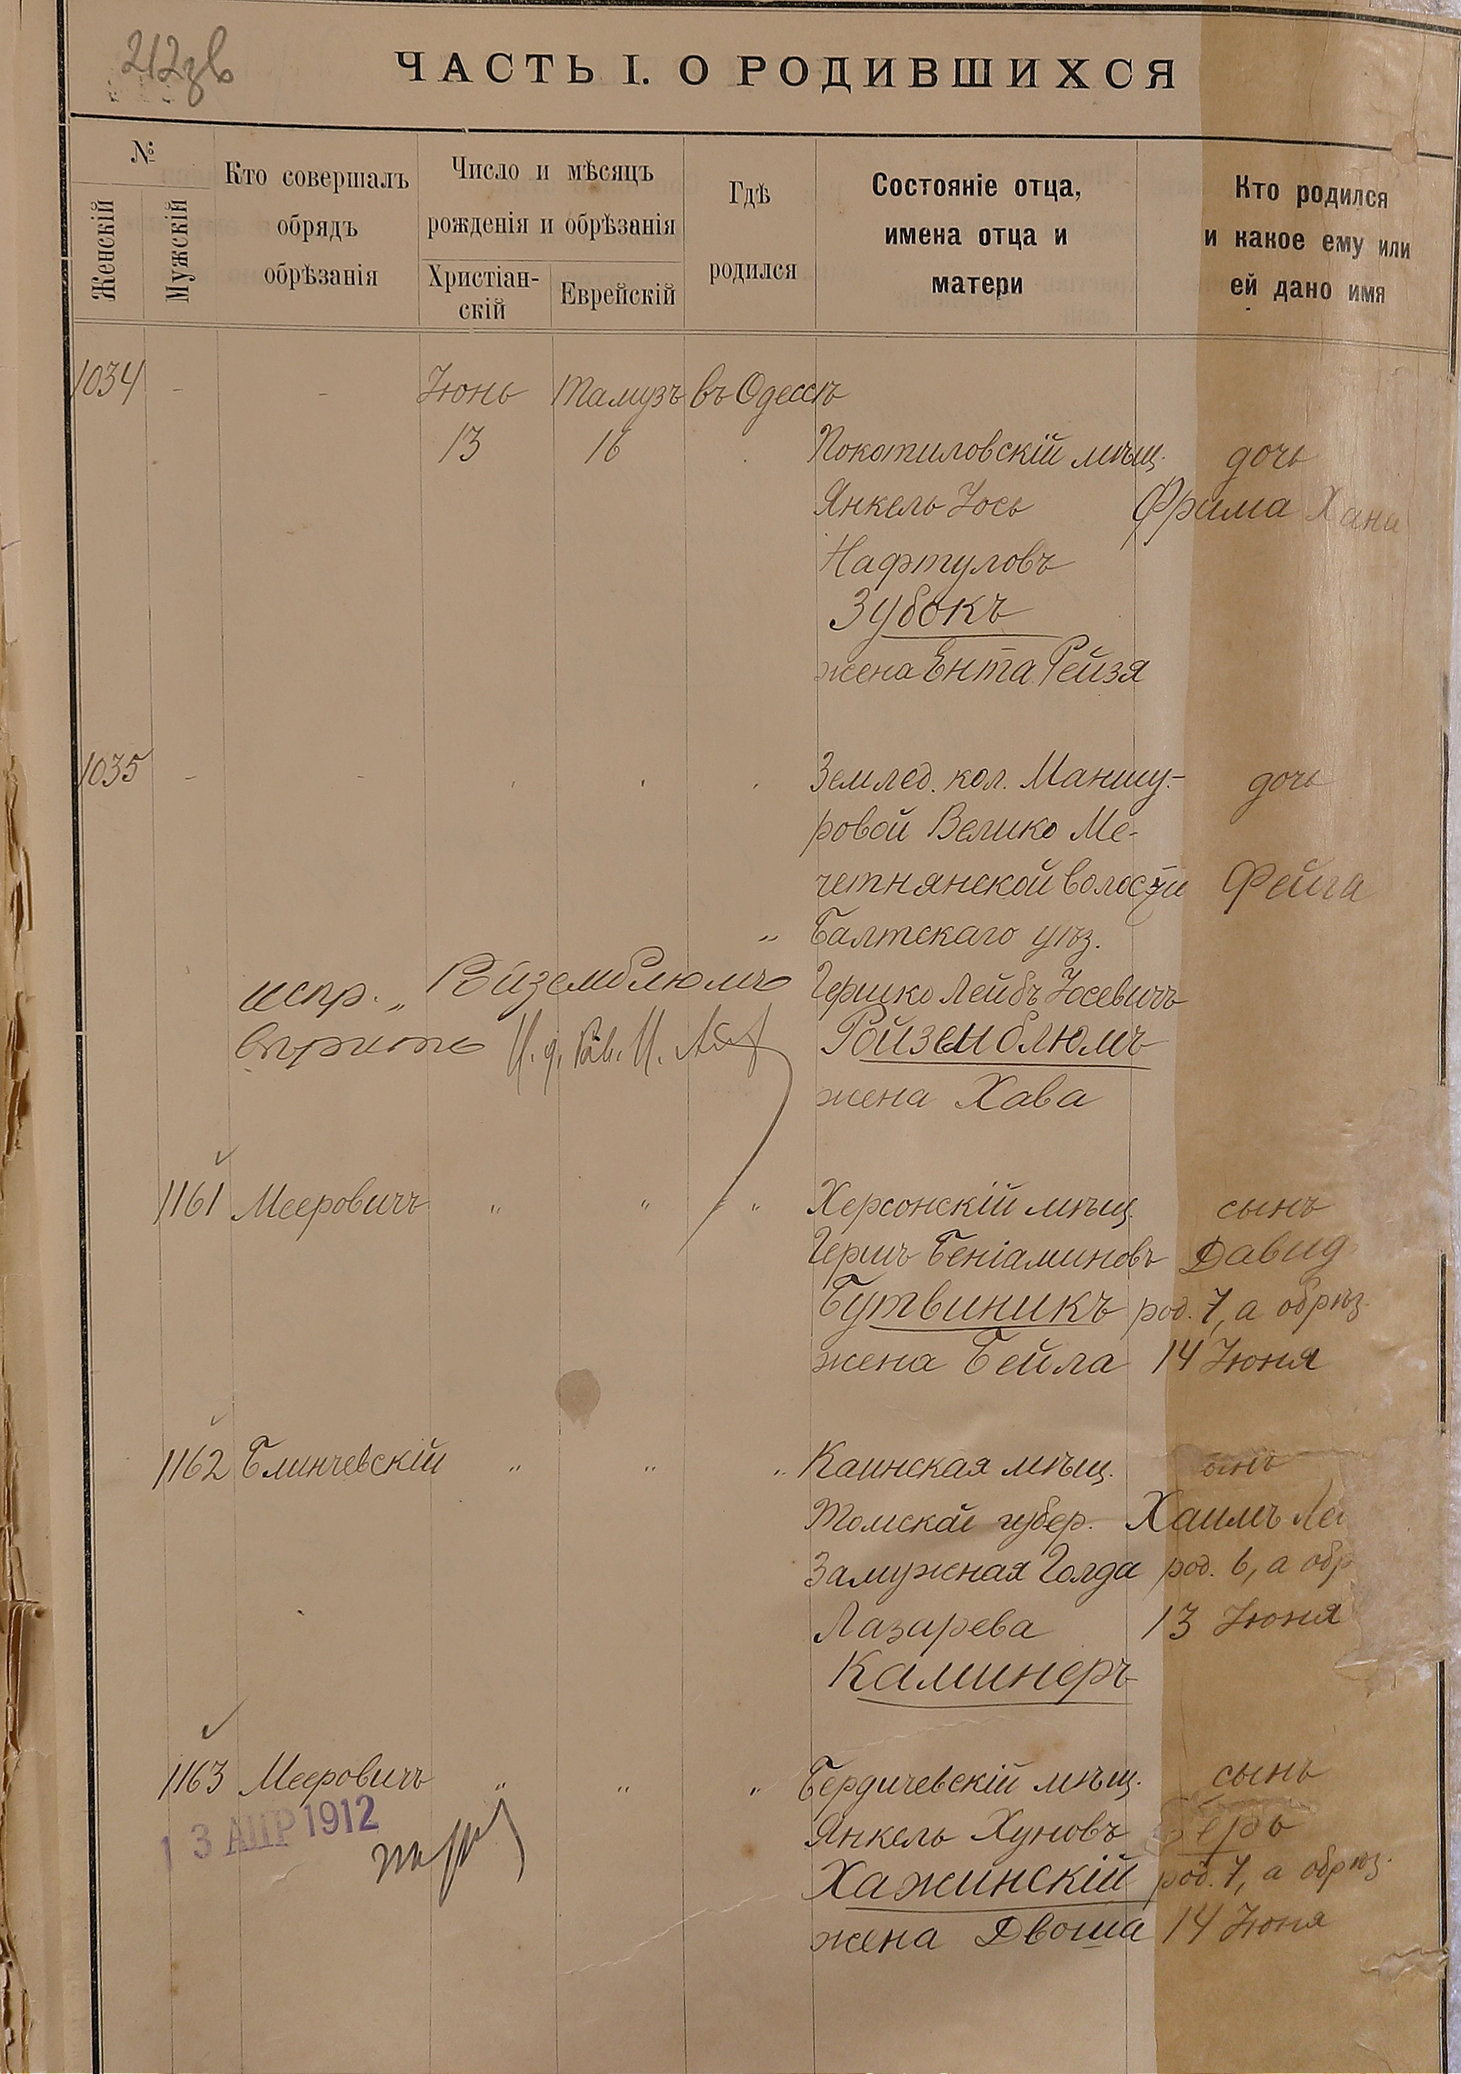 212
ЧАСТЬ I. О РОДИВШИХСЯ
№
Женскій
Мужскій
Кто совершалъ
обрядъ
обрѣзанія
Число и мѣсяцъ
рожденія и обрѣзанія
Христіан-
скій
Еврейскій
Гдѣ
родился
Состояніе отца,
имена отца и
матери
Кто родился
и какое ему или
ей дано имя
1034 - - Іюнь Тамузъ въ Одессѣ
13 16 Покотиловскій мѣщ. дочь
Янкель Іось Фрима Хана
Нафтуловъ
Зубокъ
жена Ента Рейзя
1035 - - Землед. кол. Маншу- дочь
ровой Велико Ме-
четнянской волости Фейга
" Балтскаго уѣз.
испр. " Ройземблюмъ Гершко Лейбъ Іосевичъ
вѣрить И. д. Рав. Ройземблюмъ
жена Хава
1161 Мееровичъ " " " Херсонскій мѣщ. сынъ
Гершъ Беніаминовъ Давид
Бутвиникъ род. 7, а обрѣз.
жена Бейла 14 Іюня
1162 Блинчевскій " " " Каинская мѣщ. сынъ
Томской губер. Хаимъ
Замужная Голда род. 6, а обр
Лазарева 13 Іюня
Каминеръ
1163 Мееровичъ " " " Бердичевскій мѣщ. сынъ
13 АПР 1912
Янкель Хуновъ Беръ
Хажинскій род. 7, а обрѣз.
жена Двоша 14 Іюня